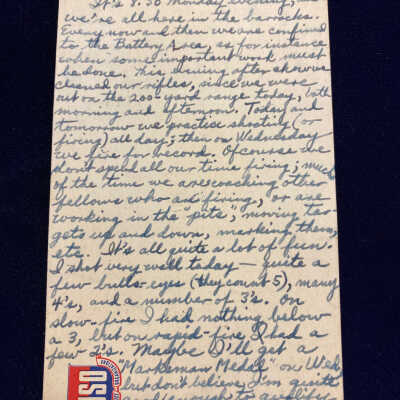 It's 8:30 Monday evening, and
we're all here in the barracks.
Every now and then we are confined
to the Battery Area, as for instance
when some important work must
be done. This evening after chow we
cleaned our rifles, since we were
out on the 200 yard range today, both
morning and afternoon. Today and
tomorrow we practice shooting (or
firing) all day; then on Wednesday
we fire for record. Of course we
don't spend all our time firing; much
of the time we are coaching other
fellows who are firing, or are
working in the "pits", moving tar-
gets up and down, marking them,
etc. It's all quite a lot of fun.
I shot very well today — quite a
few bulls-eyes (they count 5), many
4's, and a number of 3's. On
slow-fire I had nothing below
a 3, but on rapid-fire I had a
few 2's. Maybe I'll get a
"Marksman Medal" on Wed,
but don't believe I'm quite
good enough to qualify
USO